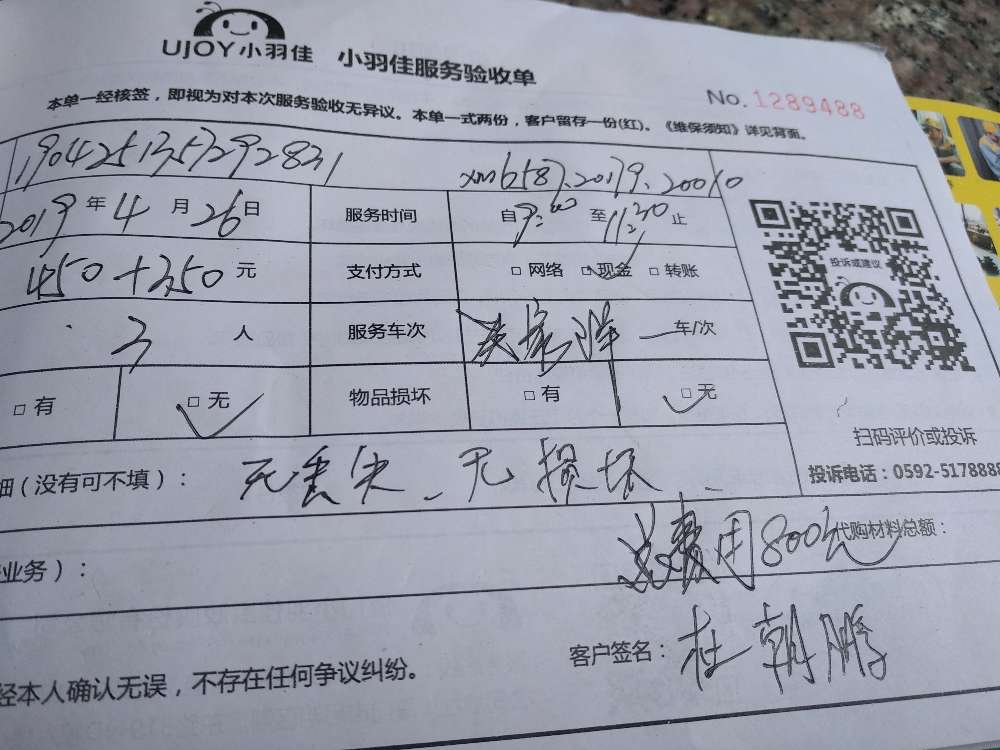 UJOY小羽佳 小羽佳服务验收单
No.1289488
本单一经核签，即视为对本次服务验收无异议。本单一式两份，客户留存一份(红)。《维保须知》详见背面。
2019年4月26日 服务时间 自9:00至11:30止
450+350元 支付方式 □网络 □现金 □转账
投诉或建议
3人 服务车次 车/次
□有 □无 物品损坏 □有 □无
扫码评价或投诉
细(没有可不填)： 无丢失、无损坏、
投诉电话：0592-5178888
总费用800元 代购材料总额：
业务)：
客户签名：杜朝鹏
经本人确认无误，不存在任何争议纠纷。